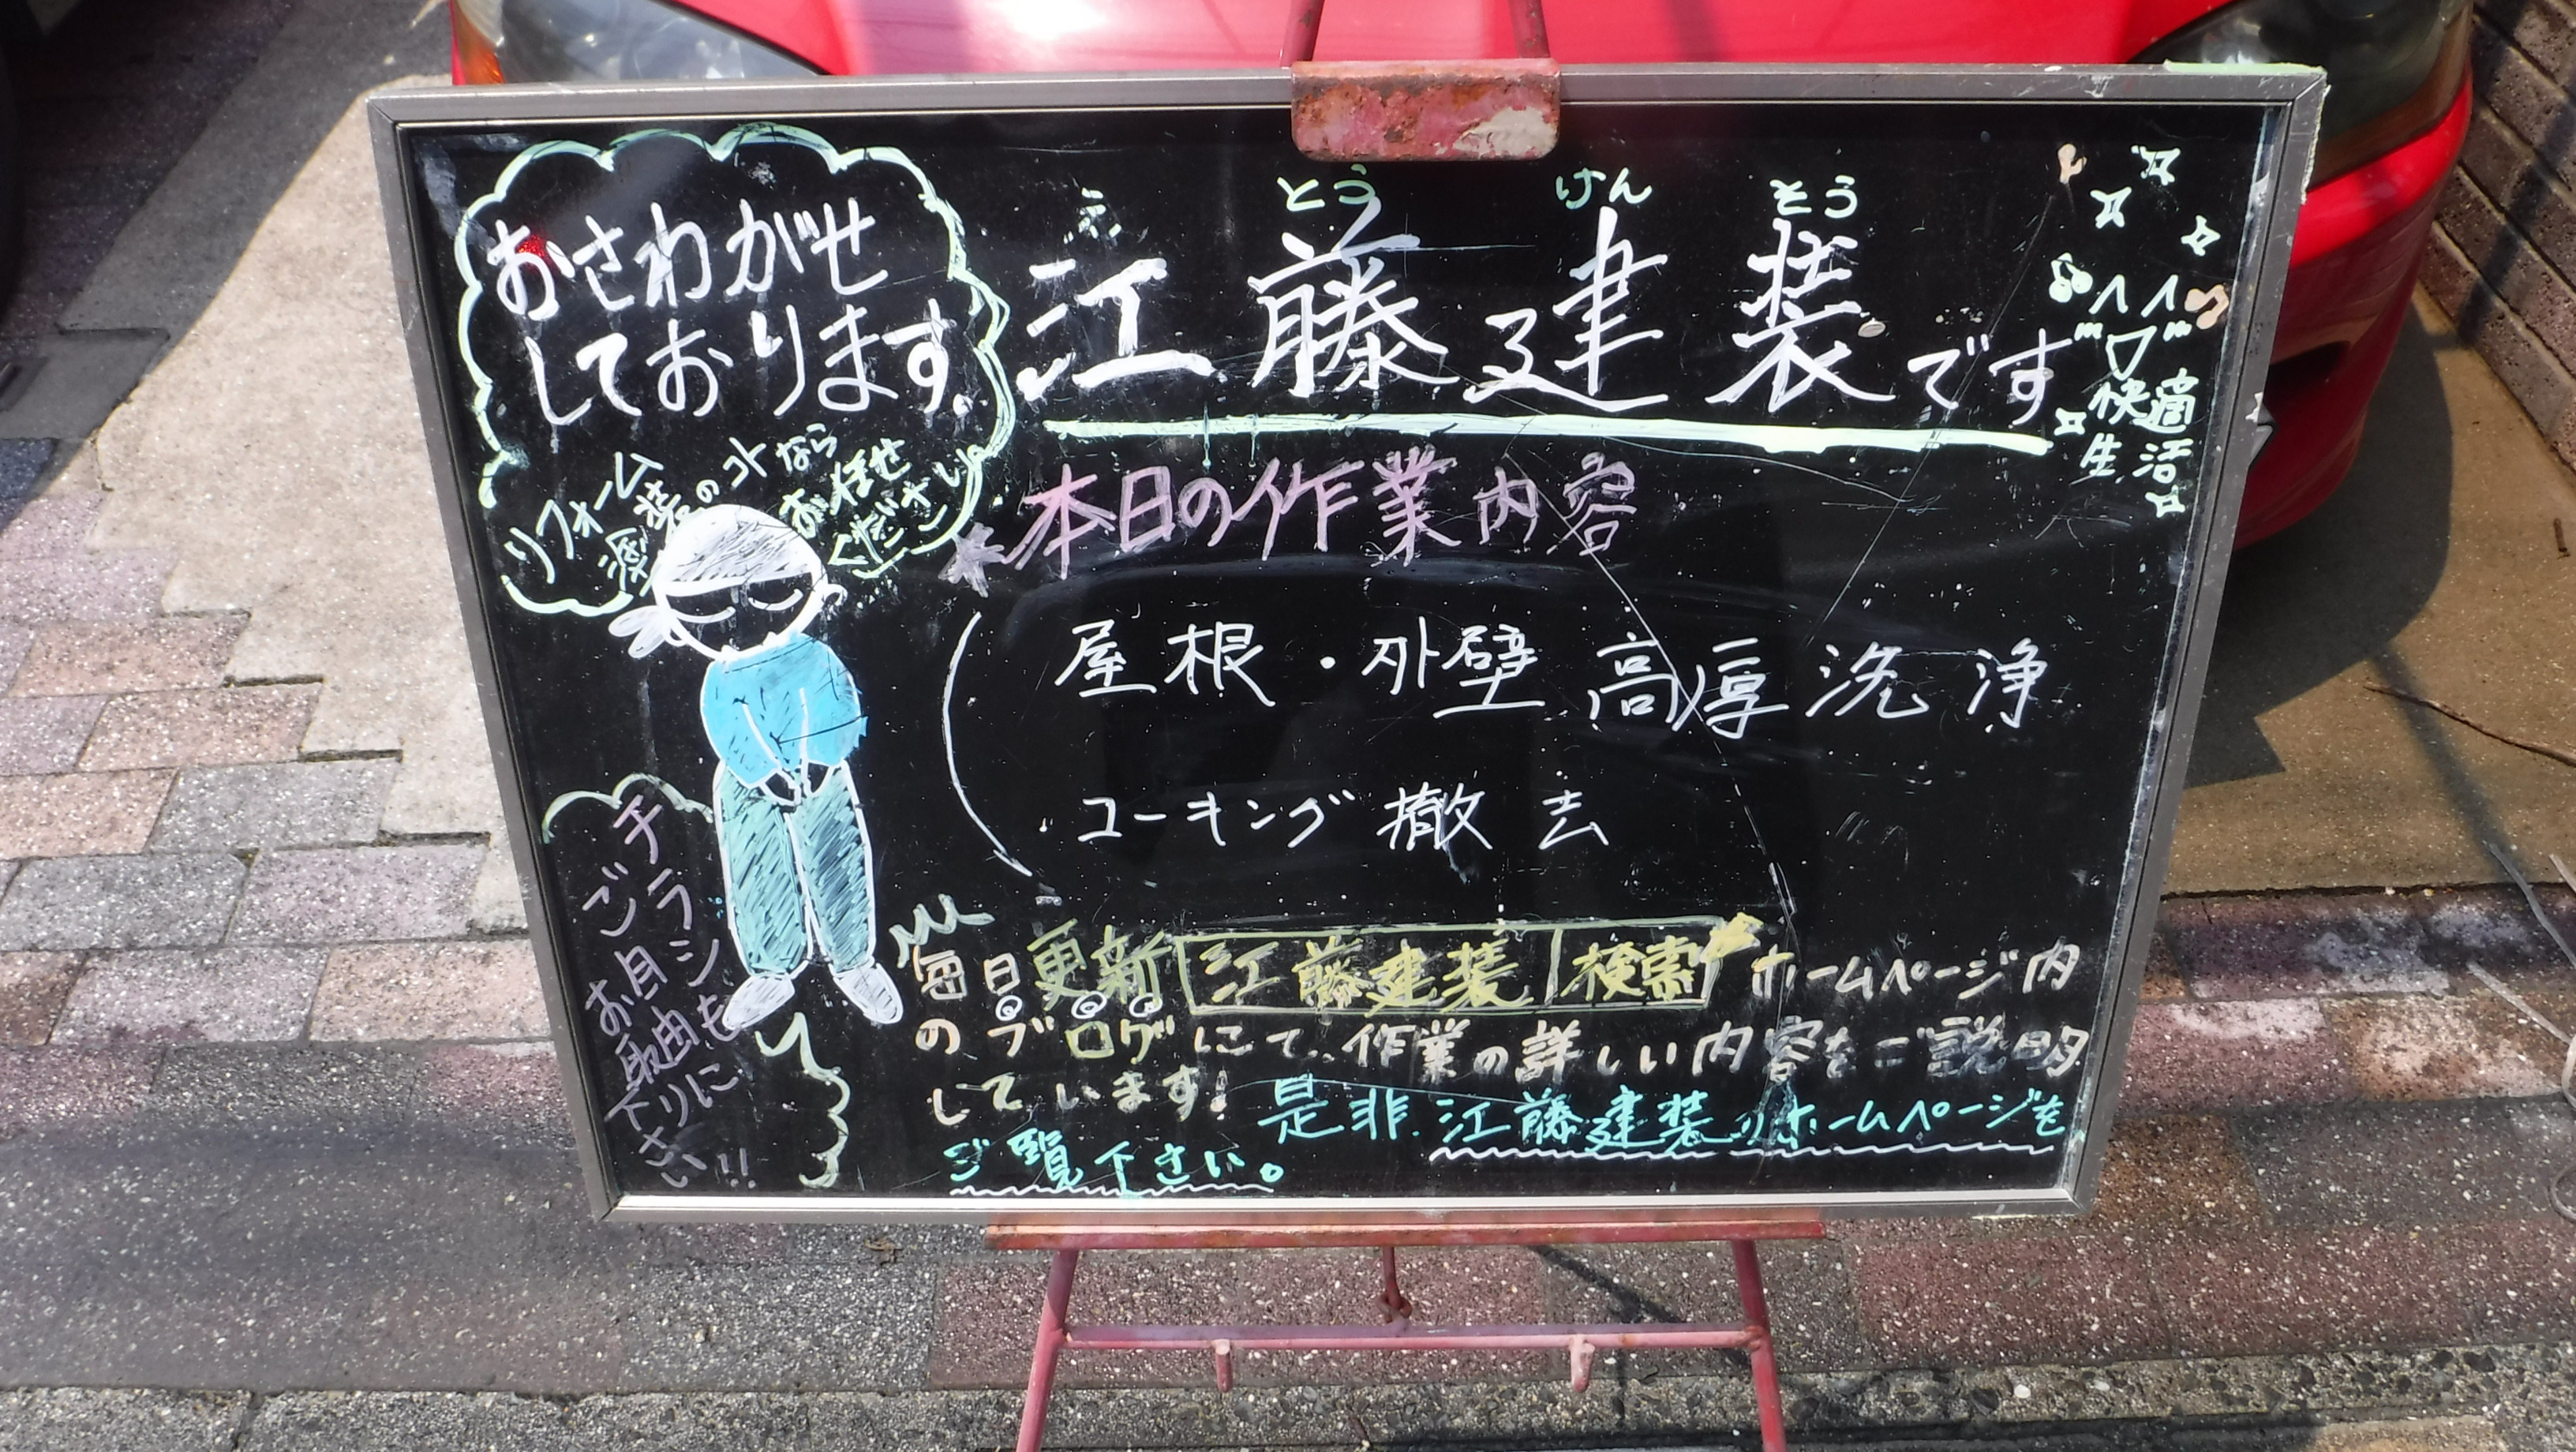 おさわがせ
しております。
リフォーム
塗装のコトなら
お任せ
ください
え とう けん そう
江藤建装です
快適
生活
本日の作業内容
屋根・外壁 高厚洗浄
コーキング撤去
毎日更新 江藤建装 検索 ホームページ内
のブログにて、作業の詳しい内容をご説明
しています!
是非 江藤建装のホームページを
ご覧下さい。
チラシも
ご自由に
お取り
下さい!!